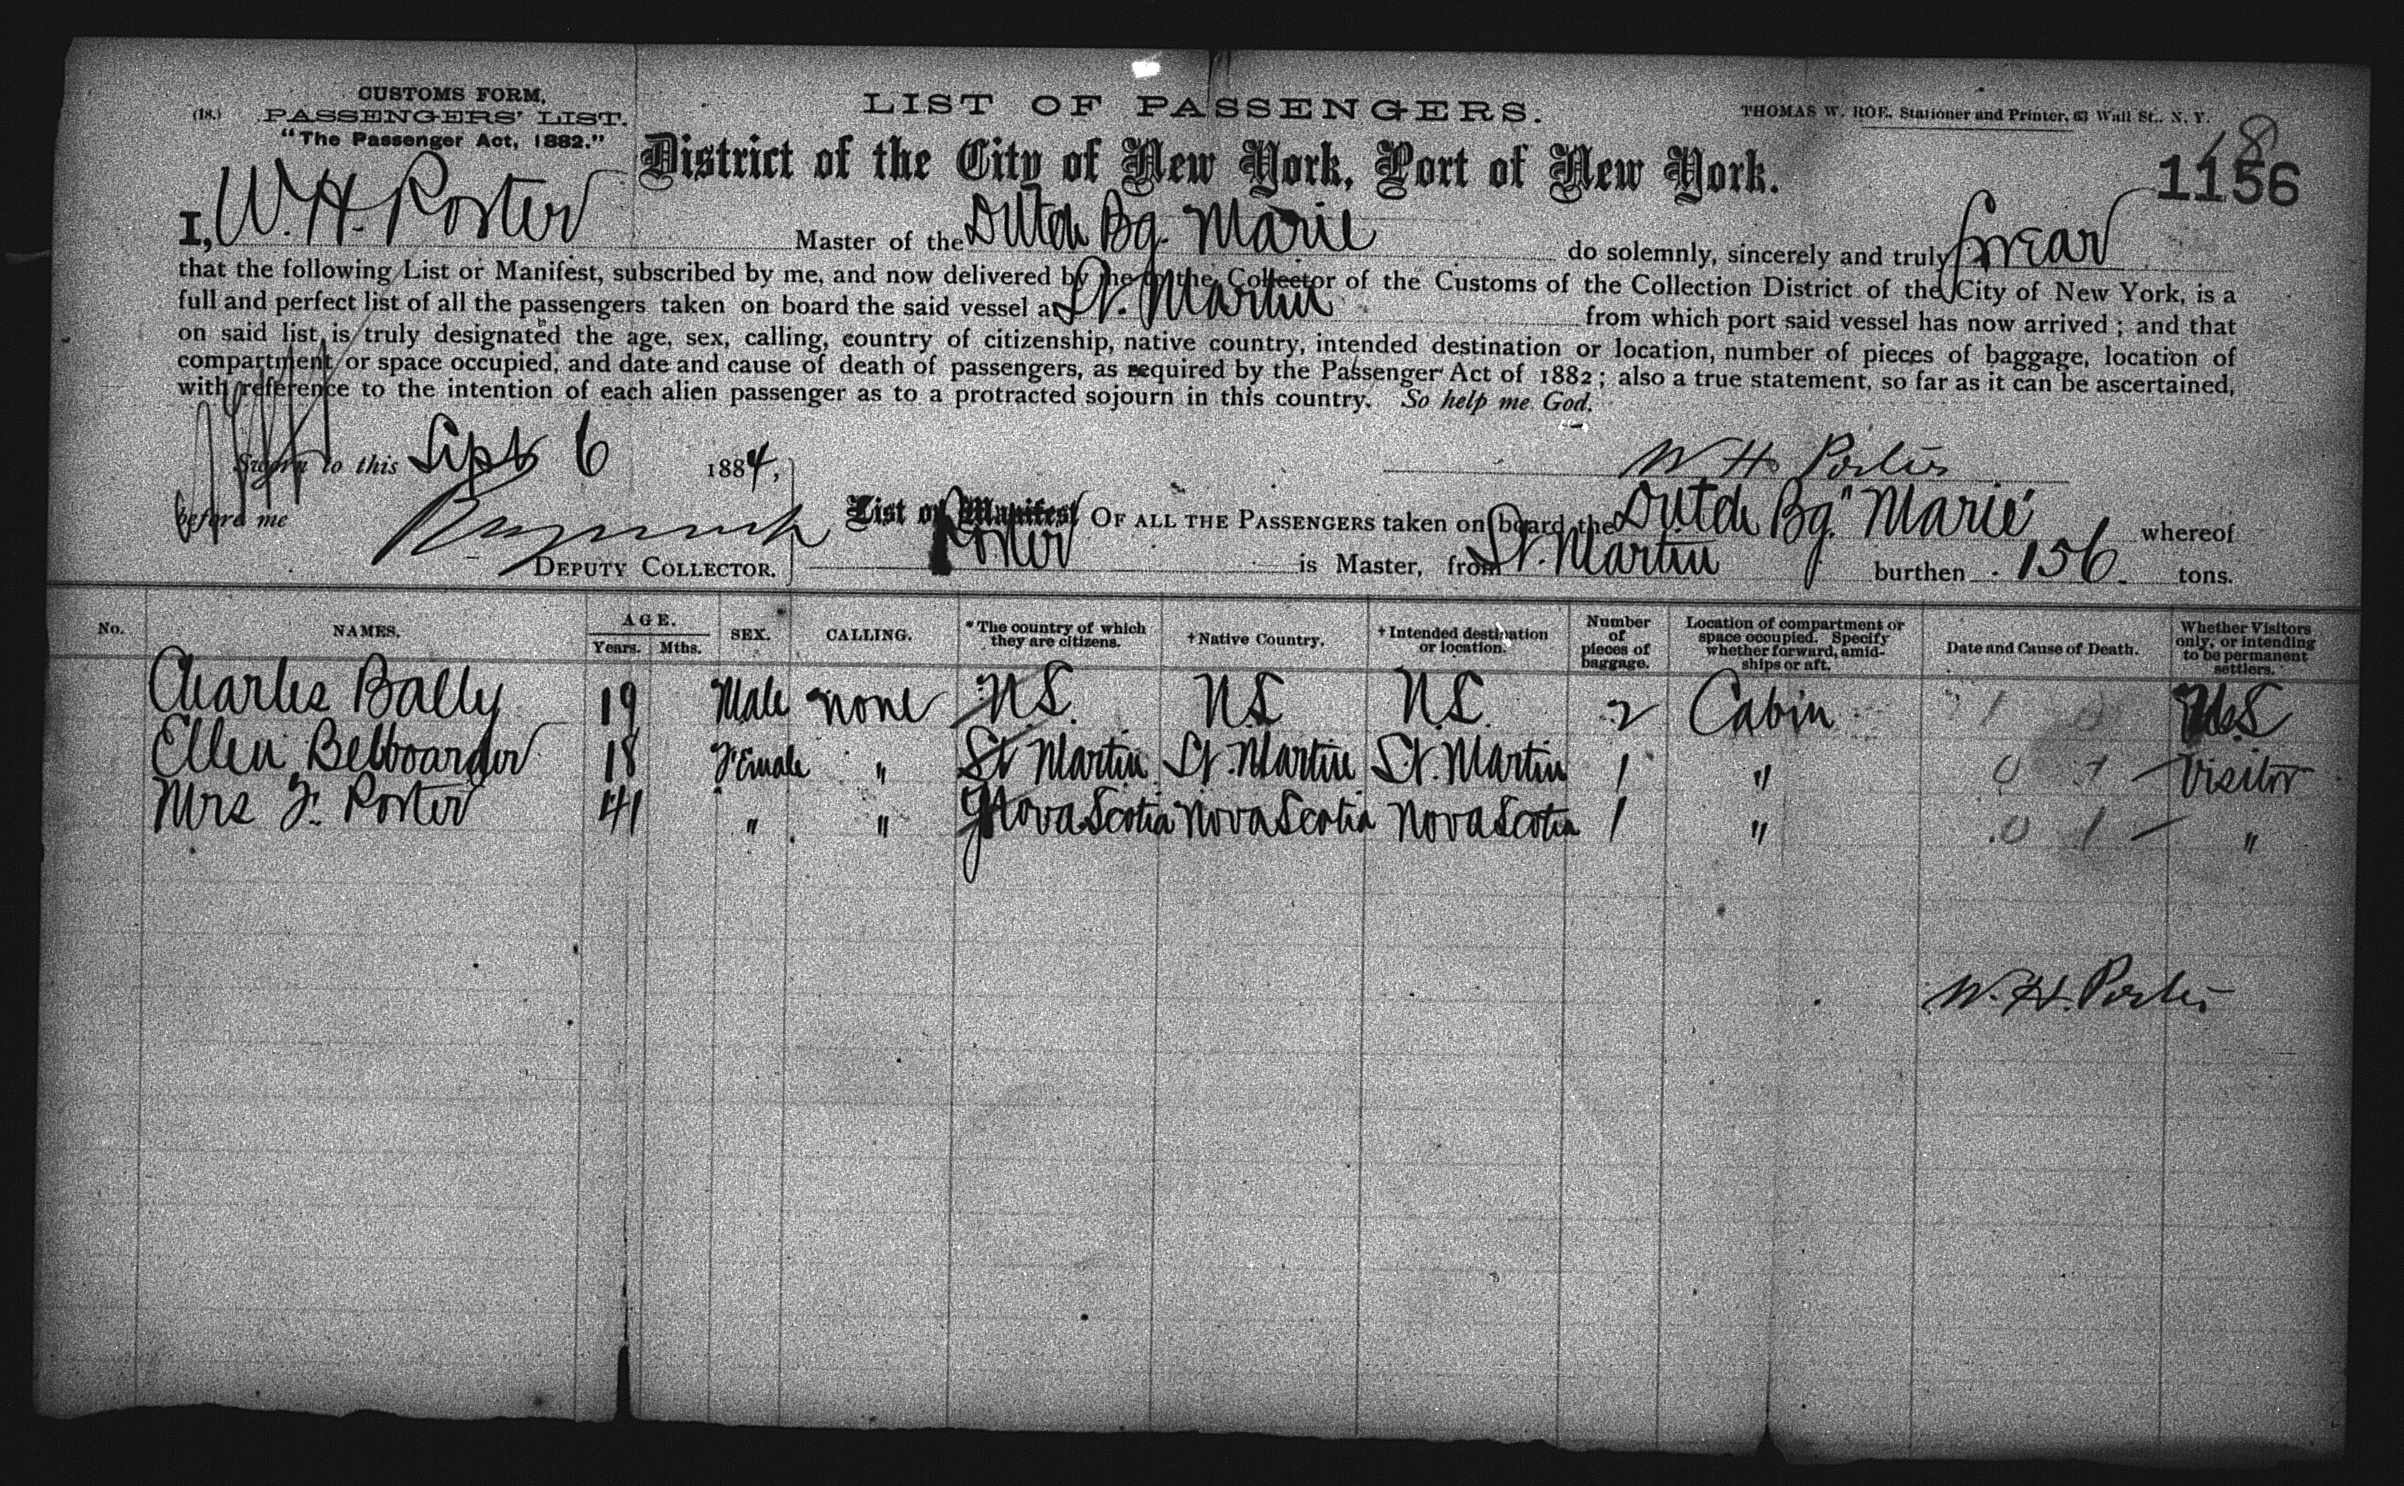 CUSTOMS FORM,
(18.) PASSENGERS' LIST.
"The Passenger Act, 1882."
LIST OF PASSENGERS.
THOMAS W. ROE, Stationer and Printer, 63 Wall St., N. Y.
District of the City of New York, Port of New York.
18
1156
I, W. H. Porter Master of the Dutch Bg. Marie do solemnly, sincerely and truly swear
that the following List or Manifest, subscribed by me, and now delivered by me to the Collector of the Customs of the Collection District of the City of New York, is a
full and perfect list of all the passengers taken on board the said vessel at St. Martin from which port said vessel has now arrived; and that
on said list is truly designated the age, sex, calling, country of citizenship, native country, intended destination or location, number of pieces of baggage, location of
compartment or space occupied, and date and cause of death of passengers, as required by the Passenger Act of 1882; also a true statement, so far as it can be ascertained,
with reference to the intention of each alien passenger as to a protracted sojourn in this country. So help me God.
Sworn to this Sept 6 1884, W H Porter
before me
DEPUTY COLLECTOR.
List or Manifest OF ALL THE PASSENGERS taken on board the Dutch Bg "Marie" whereof
Porter is Master, from St. Martin burthen 156 tons.
No. NAMES. AGE. Years. Mths. SEX. CALLING. *The country of which they are citizens. †Native Country. †Intended destination or location. Number of pieces of baggage. Location of compartment or space occupied. Specify whether forward, amidships or aft. Date and Cause of Death. Whether Visitors only, or intending to be permanent settlers.
Charles Bally 19 Male none N.S. N.S N.S. 2 Cabin 1 0
Ellen 18 Female " St Martin St. Martin St. Martin 1 " 0 1 Visitor
Mrs J. Porter 41 " " Nova Scotia Nova Scotia Nova Scotia 1 " 0 1 "
W. H. Porter